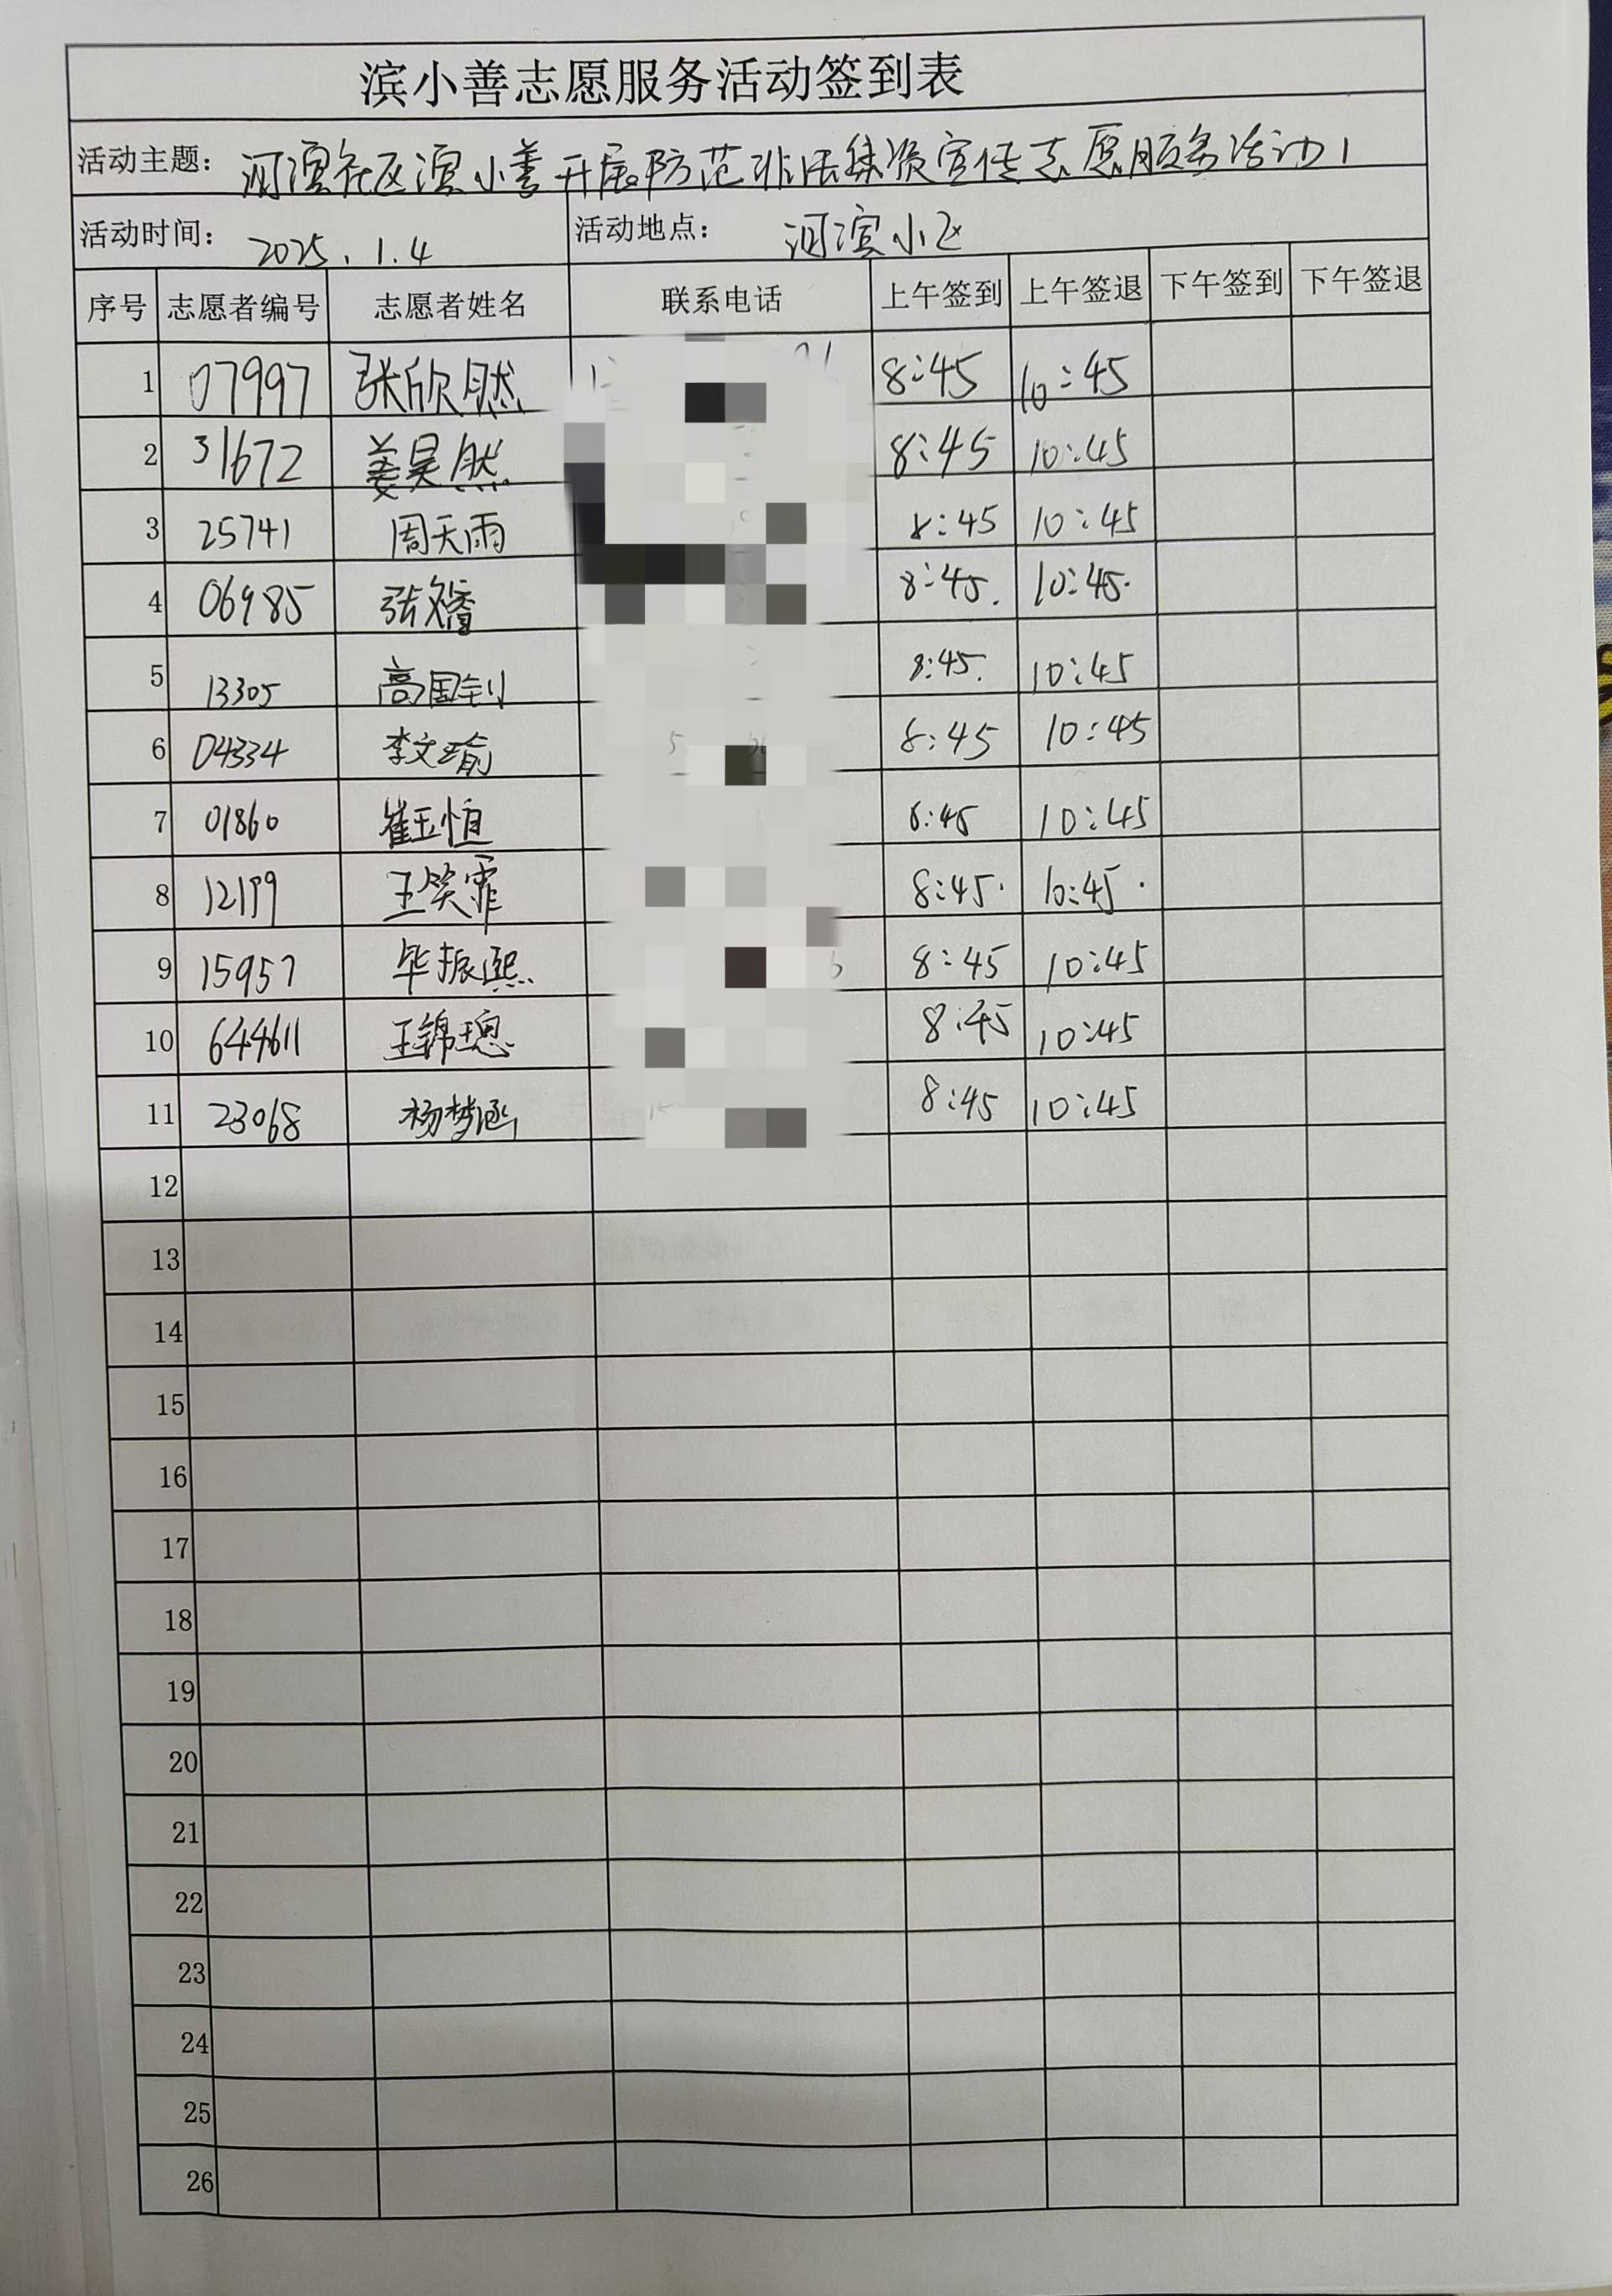 滨小善志愿服务活动签到表
活动主题：河滨社区滨小善开展防范非法集资宣传志愿服务活动1
活动时间：2025.1.4 活动地点：河滨小区
序号 志愿者编号 志愿者姓名 联系电话 上午签到 上午签退 下午签到 下午签退
1 07997 张欣然 8:45 10:45
2 31672 姜昊然 8:45 10:45
3 25741 周天雨 8:45 10:45
4 06985 8:45. 10:45.
5 13305 高国钊 8:45. 10:45
6 04334 李文瑜 8:45 10:45
7 01860 崔玉恒 8:45 10:45
8 12199 王笑霏 8:45. 10:45.
9 15957 毕振熙 8:45 10:45
10 644611 王锦璁 8:45 10:45
11 23068 杨梦涵 8:45 10:45
12
13
14
15
16
17
18
19
20
21
22
23
24
25
26